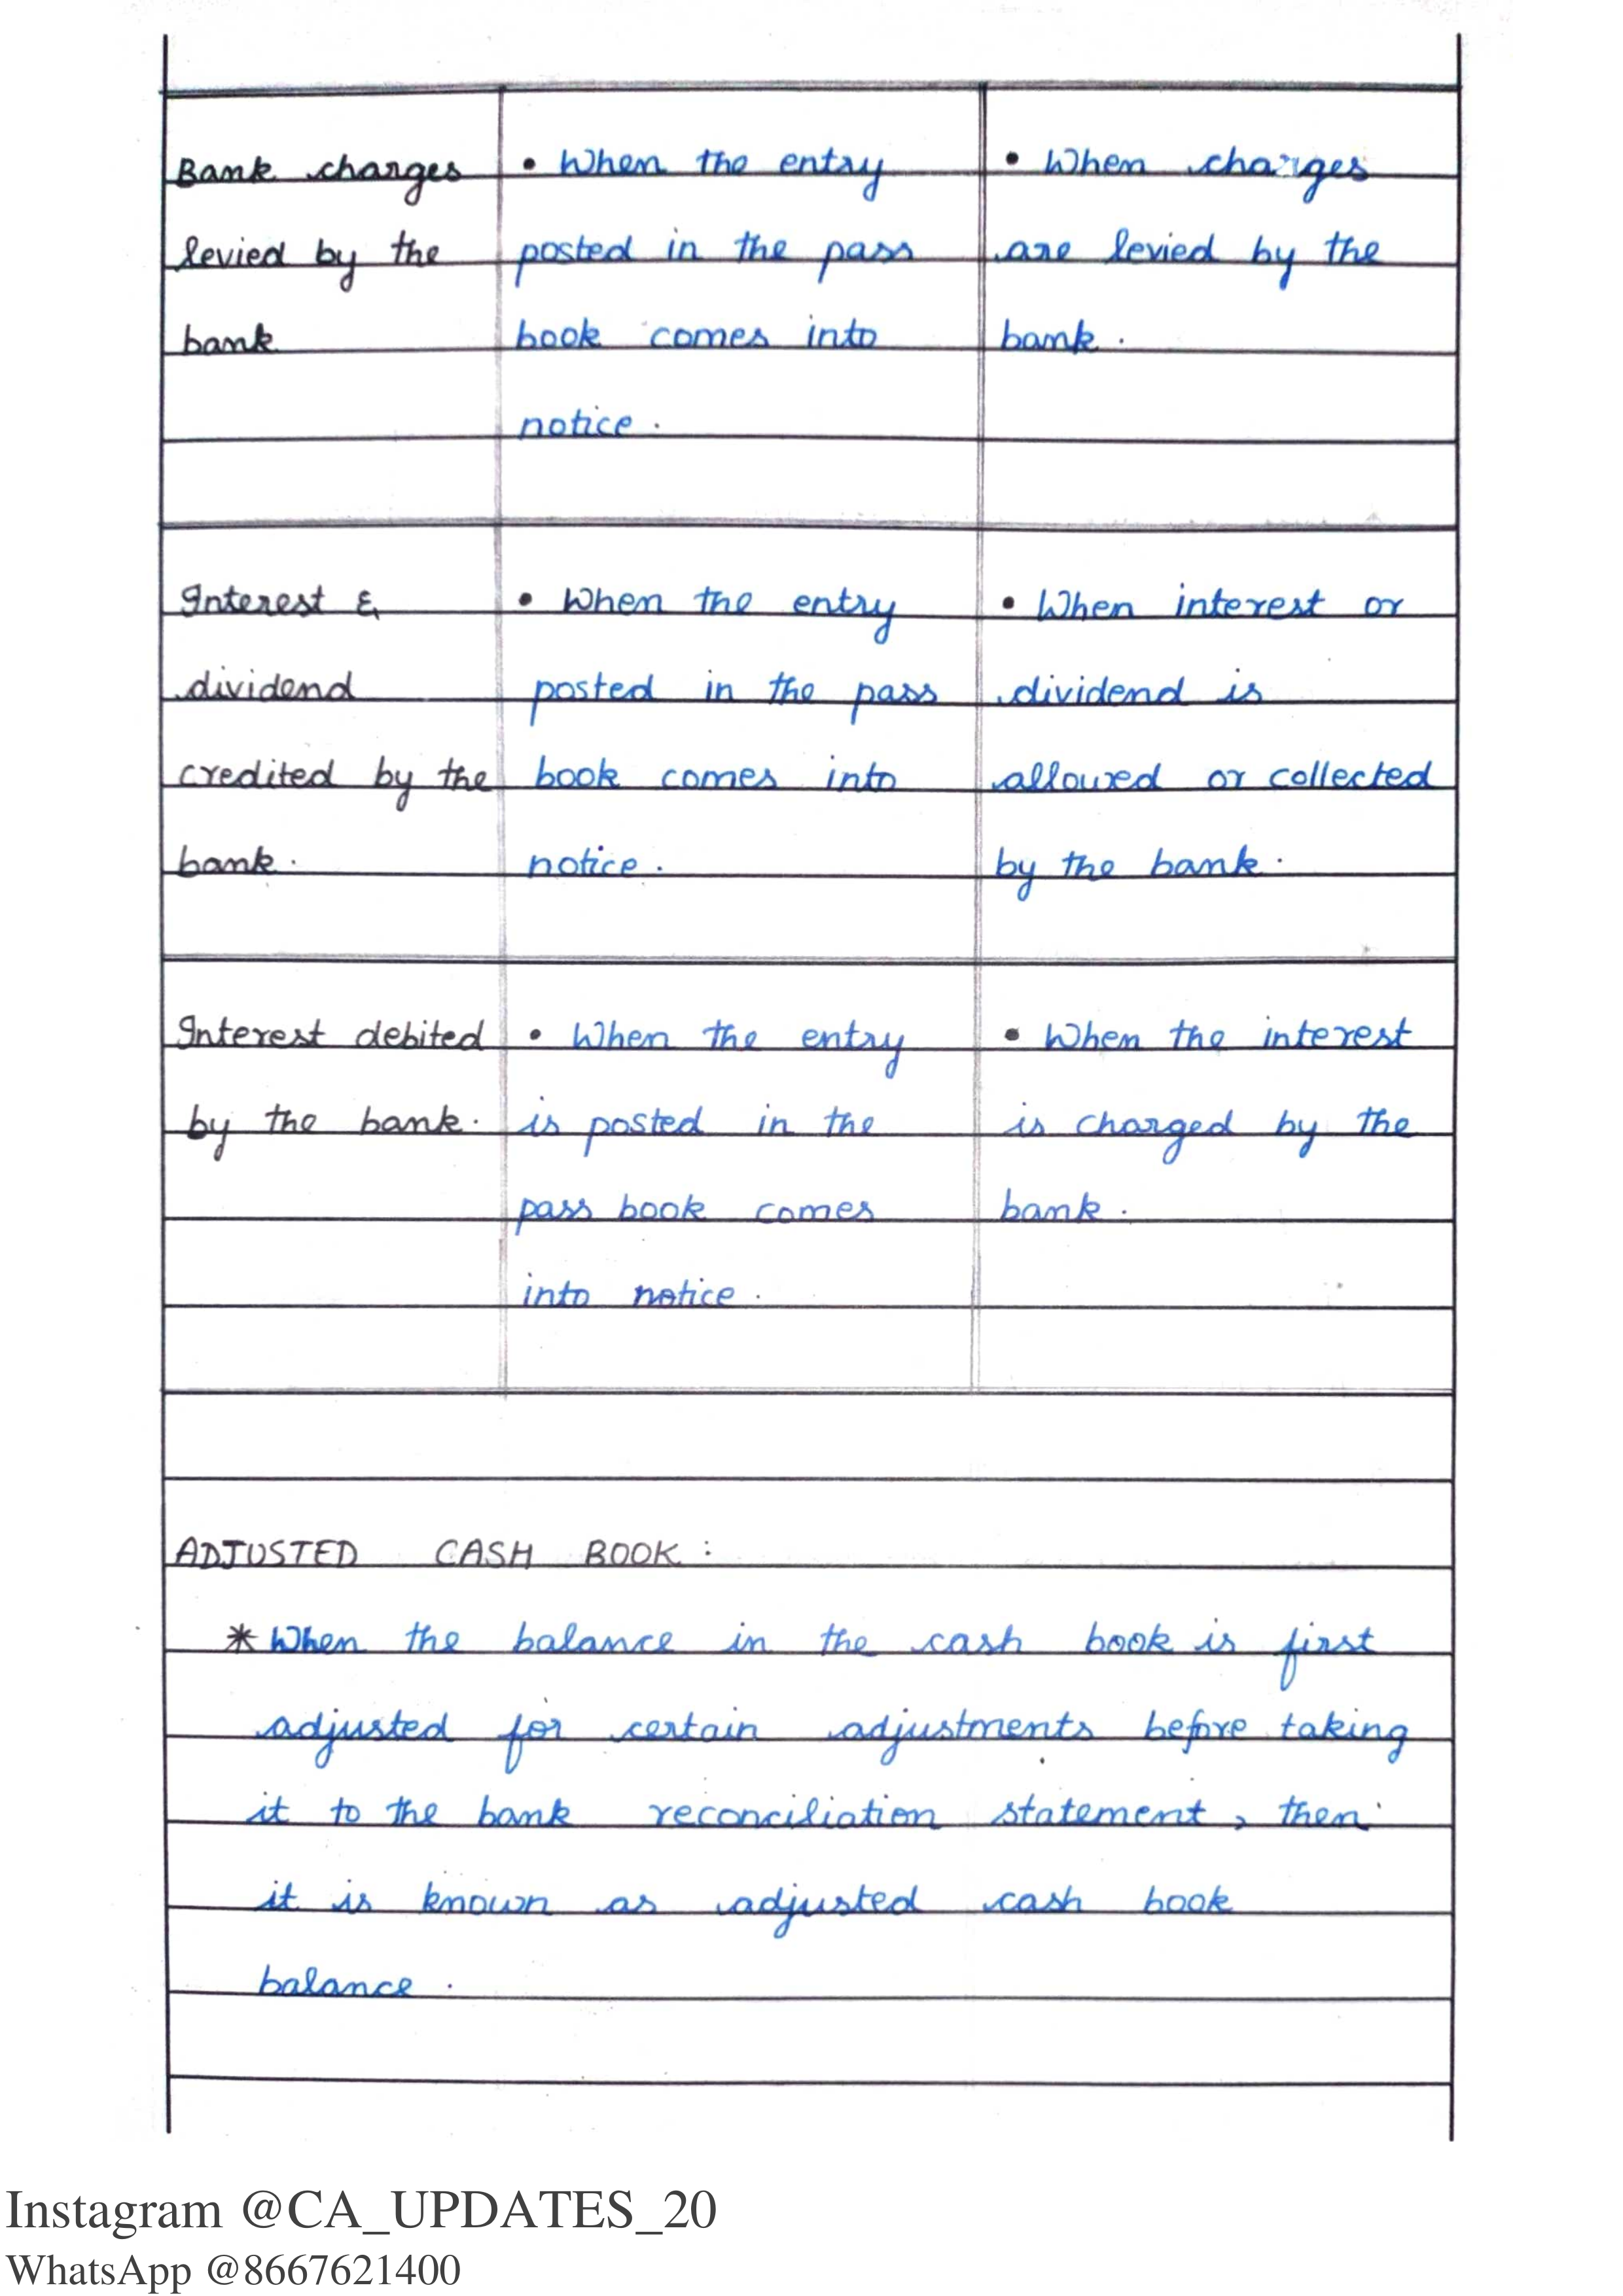 Bank charges
levied by the
bank
• When the entry
posted in the pass
book comes into
notice.
• When charges
are levied by the
bank.
Interest &
dividend
credited by the
bank.
• When the entry
posted in the pass
book comes into
notice.
• When interest or
dividend is
allowed or collected
by the bank.
Interest debited
by the bank.
• When the entry
is posted in the
pass book comes
into notice.
• When the interest
is charged by the
bank.
ADJUSTED CASH BOOK:
* When the balance in the cash book is first
adjusted for certain adjustments before taking
it to the bank reconciliation statement, then
it is known as adjusted cash book
balance.
Instagram @CA_UPDATES_20
WhatsApp @8667621400